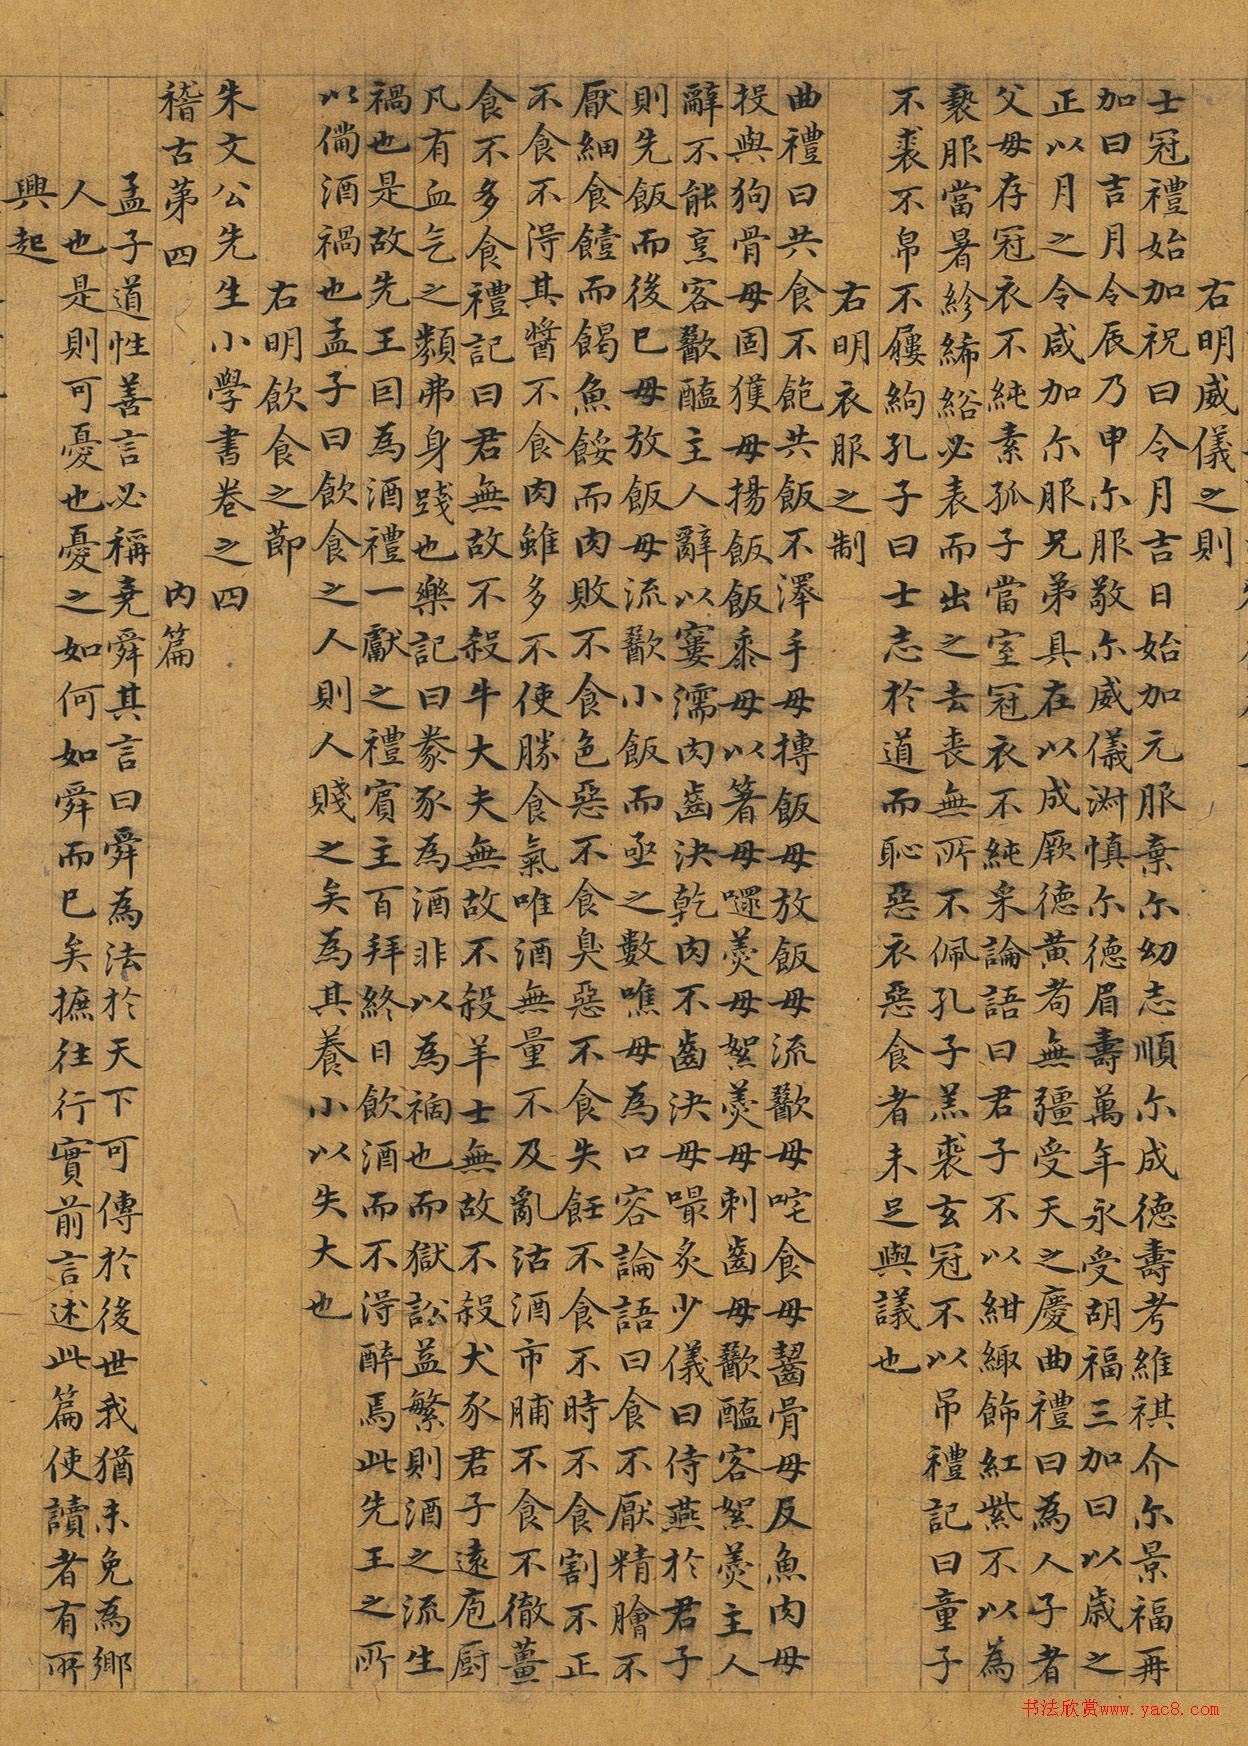 右明威儀之則
士冠禮始加祝曰令月吉日始加元服棄尔幼志順尔成德壽考維祺介尔景福再
加曰吉月令辰乃申尔服敬尔威儀淑慎尔德眉壽萬年永受胡福三加曰以歲之
正以月之令咸加尔服兄弟具在以成厥德黃耇無疆受天之慶曲禮曰為人子者
父母存冠衣不純素孤子當室冠衣不純采論語曰君子不以紺緅飾紅紫不以為
褻服當暑紾絺綌必表而出之去喪無所不佩孔子羔裘玄冠不以吊禮記曰童子
不裘不帛不屨絇孔子曰士志於道而恥惡衣惡食者未足與議也
右明衣服之制
曲禮曰共食不飽共飯不澤手毋摶飯毋放飯毋流歠毋咤食毋齧骨毋反魚肉毋
投與狗骨毋固獲毋揚飯飯黍毋以箸毋嚃羹毋絮羹毋刺齒毋歠醢客絮羹主人
辭不能烹客歠醢主人辭以窶濡肉齒決乾肉不齒決毋嘬炙少儀曰侍燕於君子
則先飯而後已毋放飯毋流歠小飯而亟之數噍毋為口容論語曰食不厭精膾不
厭細食饐而餲魚餒而肉敗不食色惡不食臭惡不食失飪不食不時不食割不正
不食不得其醬不食肉雖多不使勝食氣唯酒無量不及亂沽酒市脯不食不徹薑
食不多食禮記曰君無故不殺牛大夫無故不殺羊士無故不殺犬豕君子遠庖厨
凡有血气之類弗身踐也樂記曰豢豕為酒非以為禍也而獄訟益繁則酒之流生
禍也是故先王因為酒禮一獻之禮賓主百拜終日飲酒而不得醉焉此先王之所
以備酒禍也孟子曰飲食之人則人賤之矣為其養小以失大也
右明飲食之節
朱文公先生小學書卷之四
稽古第四 內篇
孟子道性善言必稱堯舜其言曰舜為法於天下可傳於後世我猶未免為鄉
人也是則可憂也憂之如何如舜而已矣摭往行實前言述此篇使讀者有所
興起
书法欣赏www.yac8.com